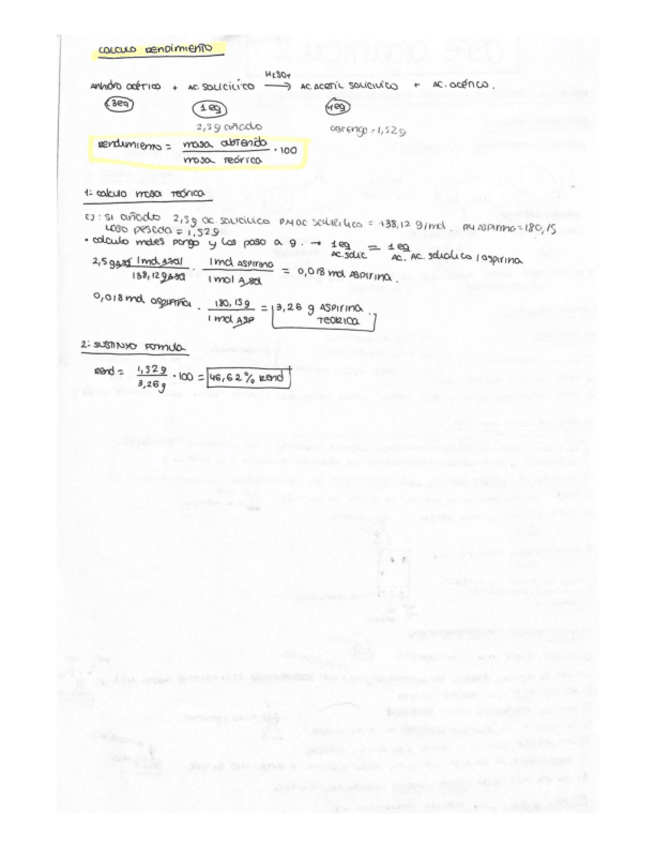 CALCULO RENDIMIENTO
H2SO4
Anhidro acético + Ac. salicilico → Ac. acetil salicilico + Ac. acético.
3eq 1eq 4eq
2,5g añado obtengo = 1,52g
Rendimiento = masa obtenida / masa teórica · 100
1: calculo masa teórica
Si añado 2,5g ac salicilico PM ac salicilico = 138,12 g/mol. PM aspirina = 180,15
pesada = 1,52g
• calculo moles pongo y los paso a g. → 1eq Ac. salic = 1eq Ac. Ac. salicilico / aspirina
2,5g · 1mol / 138,12g · 1mol aspirina / 1mol A.sal = 0,018 mol aspirina.
0,018 mol aspirina · 180,15g / 1mol ASP = 3,26 g ASPIRINA TEORICA
2: sustituyo formula
Rend = 1,52g / 3,26g · 100 = 46,62% Rend